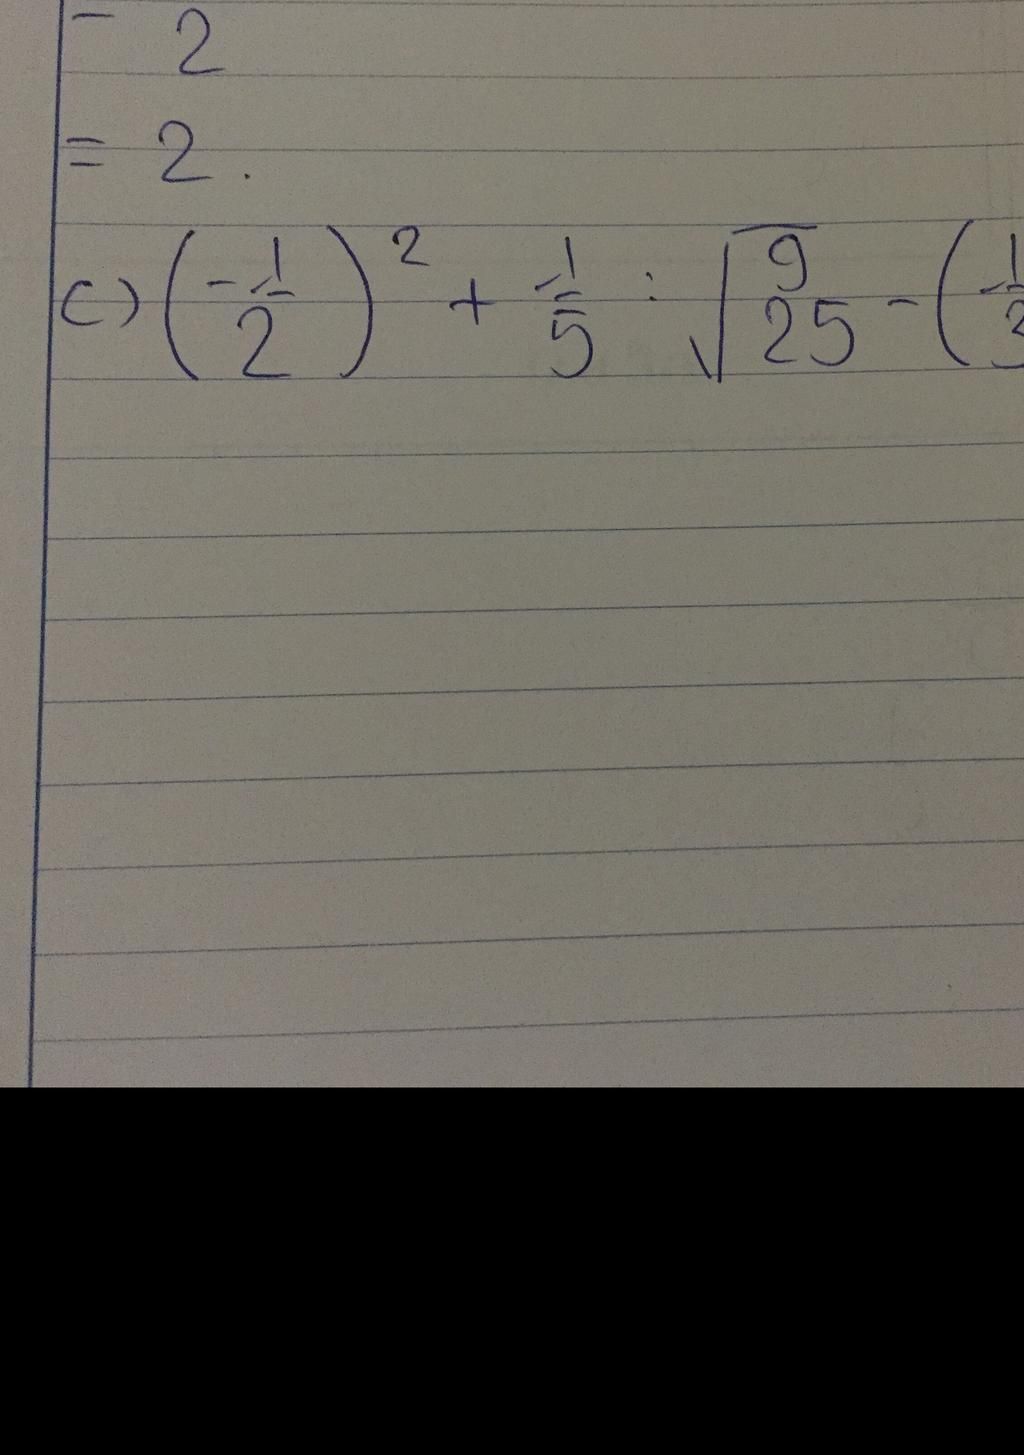 - 2
= 2.
c) (-1/2)² + 1/5 : √9/25 - (1/3